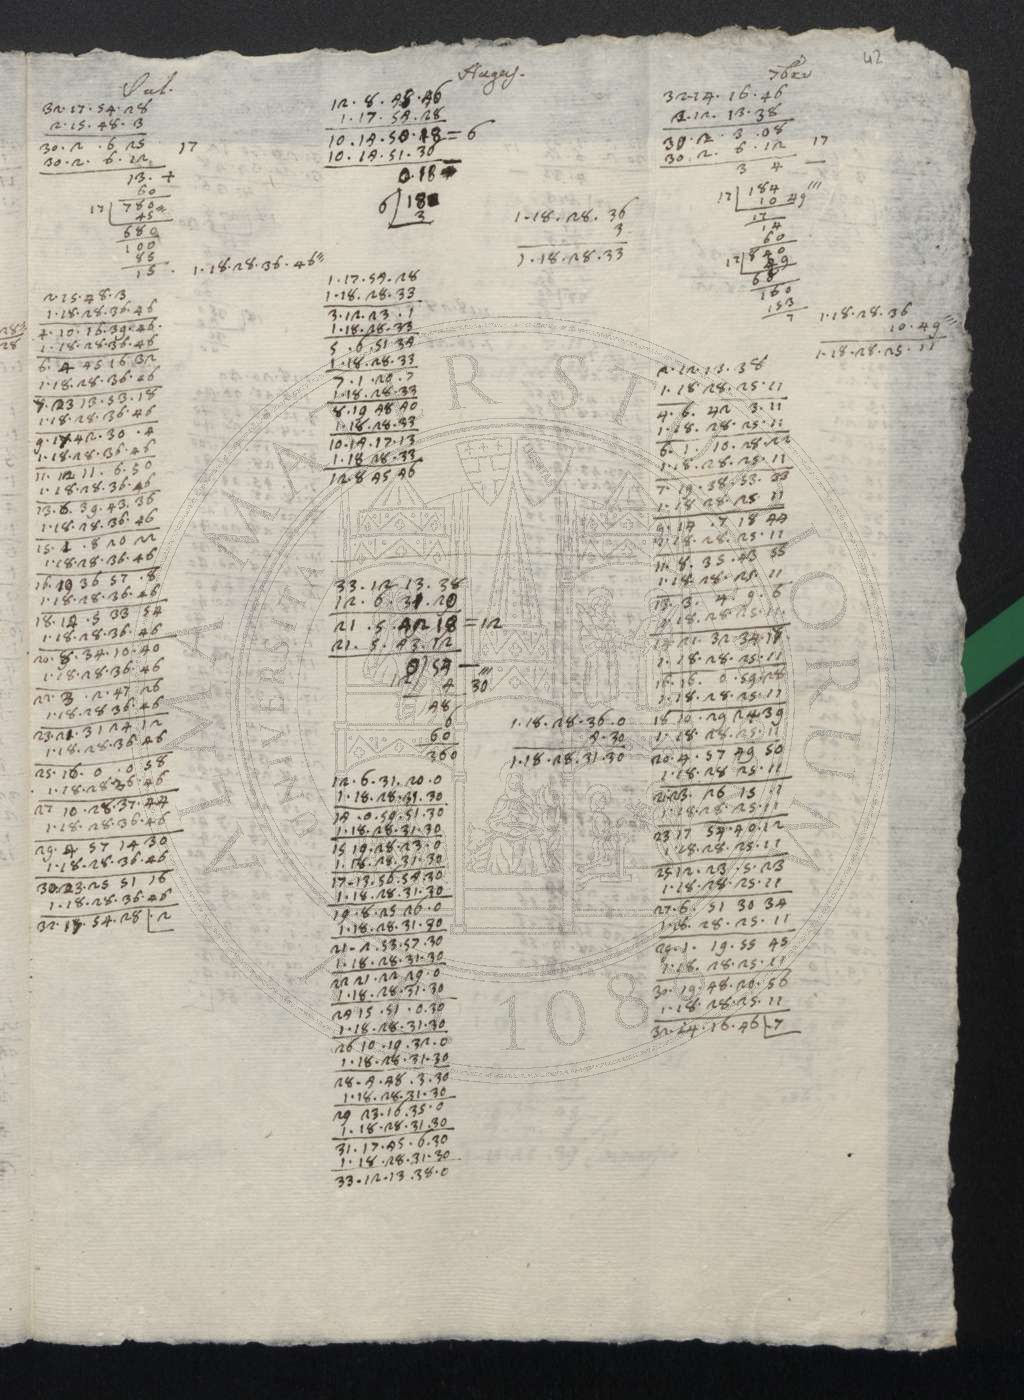 42
Jul.
32.17.54.28
2.15.48.3
30.2.6.25 17
30.2.6.12
13.+
60
17 780
45
680
100
85
15. 1.18.28.36.46'''
2.15.48.3
1.18.28.36.46
4.10.16.39.46.
1.18.28.36.46
6.4 45 16 32
1.18.28.36.46
7.23 13.53.18
1.18.28.36.46
9.17 42.30.4
1.18.28.36.46
11.12 11.6.50
1.18.28.36.46
13.6.39.43.36
1.18.28.36.46
15.1.8 20 22
1.18.28.36.46
16.19 36 57.8
1.18.28.36.46
18.14.5 33 54
1.18.28.36.46
20.8.34.10.40
1.18.28.36.46
22.3.2.47 26
1.18.28.36.46
23.21.31 24 12
1.18.28.36 46
25.16.0.0 58
1.18.28 36.46
27 10.28.37.44
1.18.28.36.46
29.4 57 14 30
1.18.28.36.46
30 23.25 51 16
1.18.28.36.46
32.17.54.28 2
August.
12.8.45.46
1.17.54.28
10.14.50.18 = 6
10.14.51.30
0.18
6 18
3
1.18.28.36
3
1.18.28.33
1.17.54.28
1.18.28.33
3.12.23.1
1.18.28.33
5.6.51 34
1.18.28.33
7.1.20.7
1.18.28.33
8.19 48 40
1.18.28.33
10.14.17.13
1.18 28.33
12.8 45 46
33.12.13.38
12.6.31.20
21.5.42 18 = 12
21.5.43.12
0 54 —
12 4 30'''
48
6
60
360
1.18.28.36.0
4.30
1.18.28.31.30
12.6.31.20.0
1.18.28.31.30
14.0.59.51.30
1.18.28.31.30
15 19.28.23.0
1.18.28.31.30
17.13.56.54.30
1.18.28.31.30
19.8.25 26.0
1.18.28.31.30
21.2.53.57.30
1.18.28.31.30
22 21.22 29.0
1.18.28.31.30
24 15.51.0.30
1.18.28.31.30
26 10.19.32.0
1.18.28.31.30
28.4.48.3.30
1.18.28.31.30
29 23.16.35.0
1.18.28.31.30
31.17.45.6.30
1.18.28.31.30
33.12.13.38.0
7bre
32.14.16.46
2.12.13.38
30.2.3.08 17
30.2.6.12 —
3 4
17 184
10 49'''
17
14
60
17 840
49
68
160
153
7
1.18.28.36
10.49'''
1.18.28.25.11
2.12.13.38
1.18.28.25.11
4.6.42 3.11
1.18.28.25.11
6.1.10.28.22
1.18.28.25.11
7.19.38.53.33
1.18.28.25.11
9.14.7 18 44
1.18.28.25.11
11.8.35.43 55
1.18.28.25.11
13.3.4.9.6
1.18.28.25.11
14 21.32.34.18
1.18.28.25.11
16.16.0.59.28
1.18.28.25.11
18 10.29 24 39
1.18.28.25.11
20.4.57 49 50
1.18.28 25.11
21.23.26 15 11
1.18.28.25.11
23 17 54.40.12
1.18.28.25.11
25 12.23.5.23
1.18.28.25.11
27.6.51 30 34
1.18.28.25.11
29.1.19.55 45
1.18.28.25.11
30.19.48.20.56
1.18.28.25.11
32.14.16.46 .7